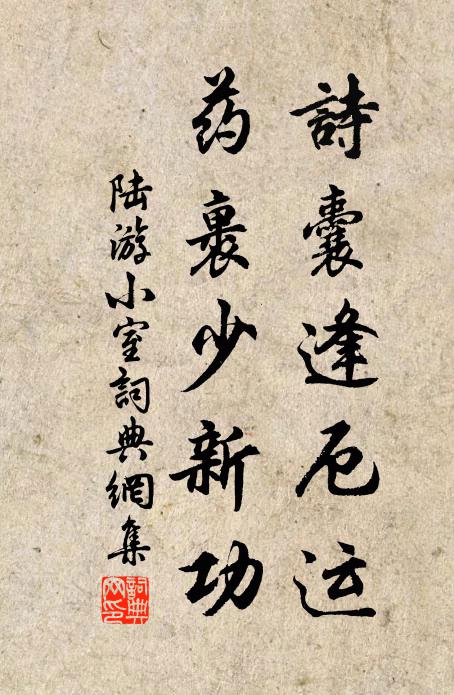 詩囊逢厄运
药裹少新功
陆游小室詞典網集
詞典网印